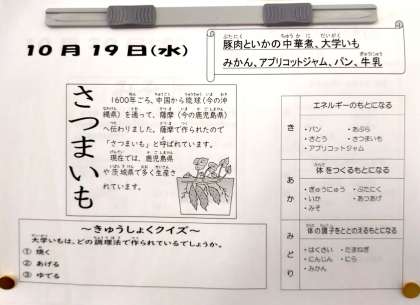 10月19日(水)
豚肉といかの中華煮、大学いも
みかん、アプリコットジャム、パン、牛乳
さつまいも
1600年ごろ、中国から琉球(今の沖
縄県)を通って、薩摩(今の鹿児島県)
へ伝わりました。薩摩で作られたので
「さつまいも」と呼ばれています。
現在では、鹿児島県
や茨城県で多く生産さ
れています。
～きゅうしょくクイズ～
大学いもは、どの調理法で作られているでしょうか。
① 焼く
② あげる
③ ゆでる
エネルギーのもとになる
き
・パン ・あぶら
・さとう ・さつまいも
・アプリコットジャム
体をつくるもとになる
あか
・ぎゅうにゅう ・ぶたにく
・いか ・あつあげ
・みそ
体の調子をととのえるもとになる
みどり
・はくさい ・たまねぎ
・にんじん ・にら
・みかん